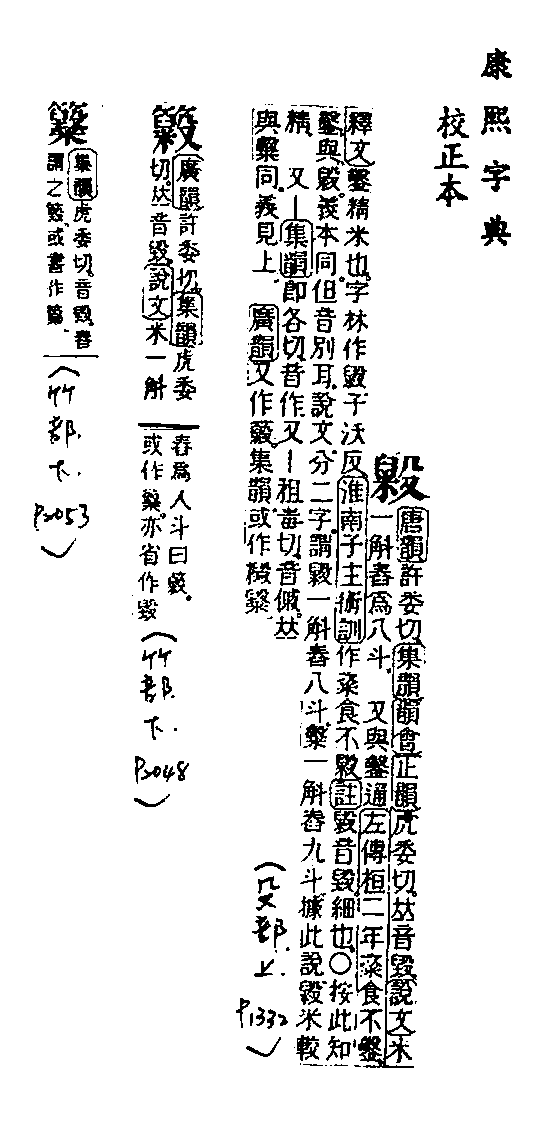 康熙字典
校正本
唐韻許委切集韻韻會正韻虎委切𠀤音毀說文米
一斛舂爲八斗 又與鑿通左傳桓二年粢食不鑿
釋文鑿精米也字林作毇子沃反淮南子主術訓作粢食不毇註毇音毀細也〇按此知
鑿與毇義本同但音別耳說文分二字謂毇一斛舂八斗糳一斛舂九斗據此說毇米較
精 又集韻卽各切音作又祖毒切音傶𠀤
與糳同義見上 廣韻又作集韻或作
(殳部上. P1332)
廣韻許委切集韻虎委
切𠀤音毀說文米一斛
舂爲八斗曰
或作亦省作毇
(竹部下. P2048)
集韻虎委切音毀舂
謂之或書作
(竹部下. P2053)